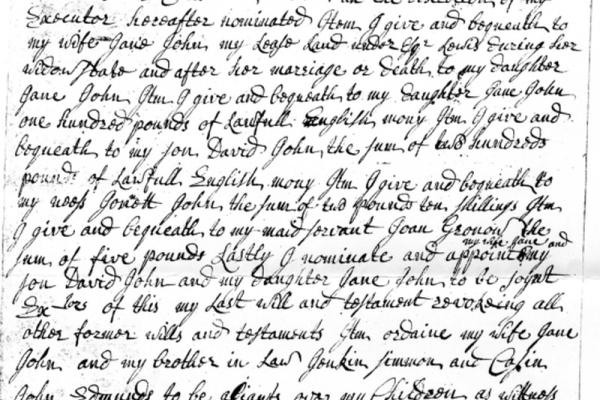 the discretion of my
Executor hereafter nominated Itm I give and bequeath to
my wife Jane John my Lease Land under Esqr Lewis during her
widow State and after her marriage or death to my daughter
Jane John Itm I give and bequeath to my daughter Jane John
one hundred pounds of Lawfull English mony Itm I give and
bequeath to my son David John the sum of two hundreds
pounds of Lawfull English mony Itm I give and bequeath to
my John the sum of two pounds ten shillings Itm
I give and bequeath to my maid servant Joan Gronow the
my wife Jane and
sum of five pounds Lastly I nominate and appoint my
son David John and my daughter Jane John to be joynt
Ex—tors of this my Last will and testament revokeing all
other former wills and testaments Itm ordaine my wife Jane
John and my brother in Law Jenkin Simmon and
John Edmunds to be over my Children as wittness